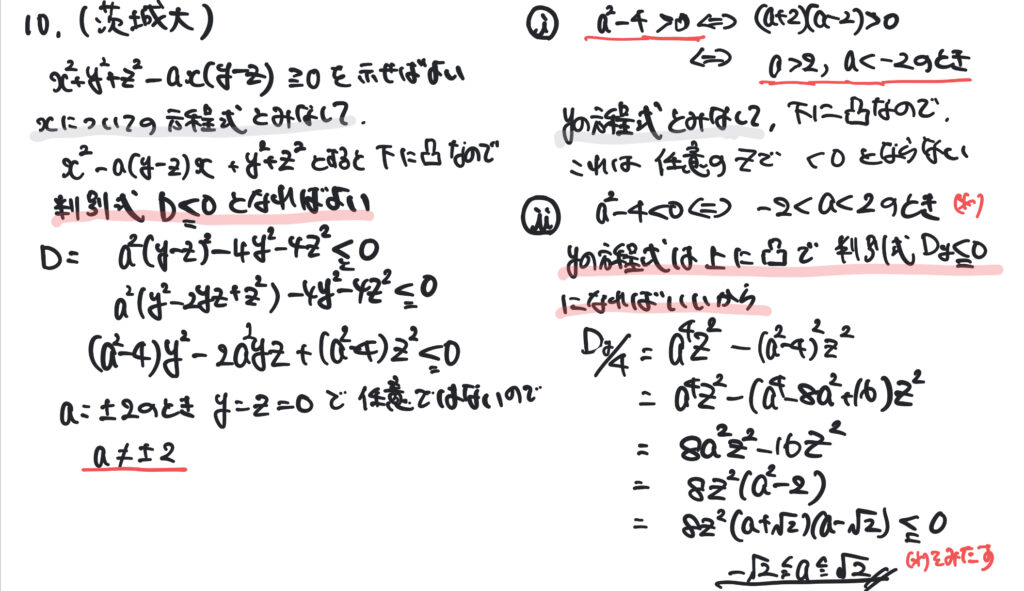 10. (茨城大)
x²+y²+z²-ax(y-z)≧0を示せばよい
xについての方程式とみなして.
x²-a(y-z)x+y²+z²とすると下に凸なので
判別式 D≦0となればよい
D= a²(y-z)²-4y²-4z²≦0
a²(y²-2yz+z²)-4y²-4z²≦0
(a²-4)y²-2a²yz+(a²-4)z²≦0
a=±2のとき y=z=0で任意ではないので
a≠±2
ⓘ a²-4>0⇔(a+2)(a-2)>0
⇔ a>2, a<-2のとき
yの方程式とみなして, 下に凸なので.
これは任意のzで <0とならない
ⅱ a²-4<0⇔ -2<a<2のとき
yの方程式は上に凸で判別式Dy≦0
になればいいから
Dy/4 = a⁴z²-(a²-4)²z²
= a⁴z²-(a⁴-8a²+16)z²
= 8a²z²-16z²
= 8z²(a²-2)
= 8z²(a+√2)(a-√2)≦0
をみたす
-√2≦a≦√2